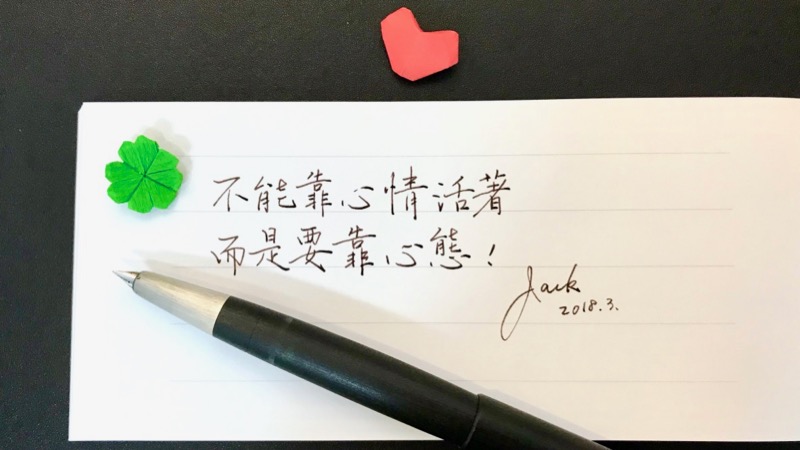 不能靠心情活著
而是要靠心態！
Jack
2018.3.